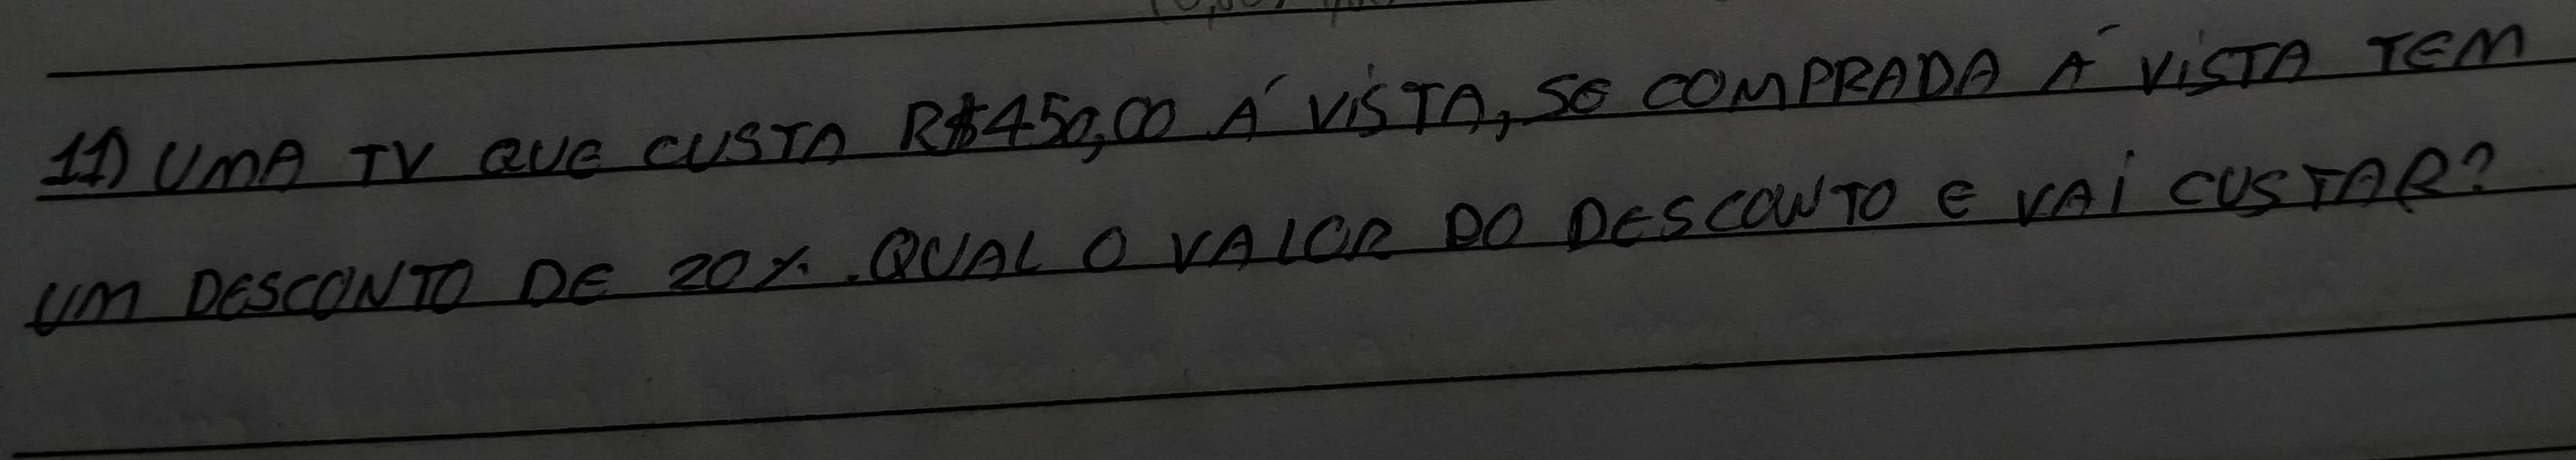 11) UMA TV QUE CUSTA R$450,00 Á VISTA, SE COMPRADA Á VISTA TEM
UM DESCONTO DE 20%. QUAL O VALOR DO DESCONTO E VAI CUSTAR?